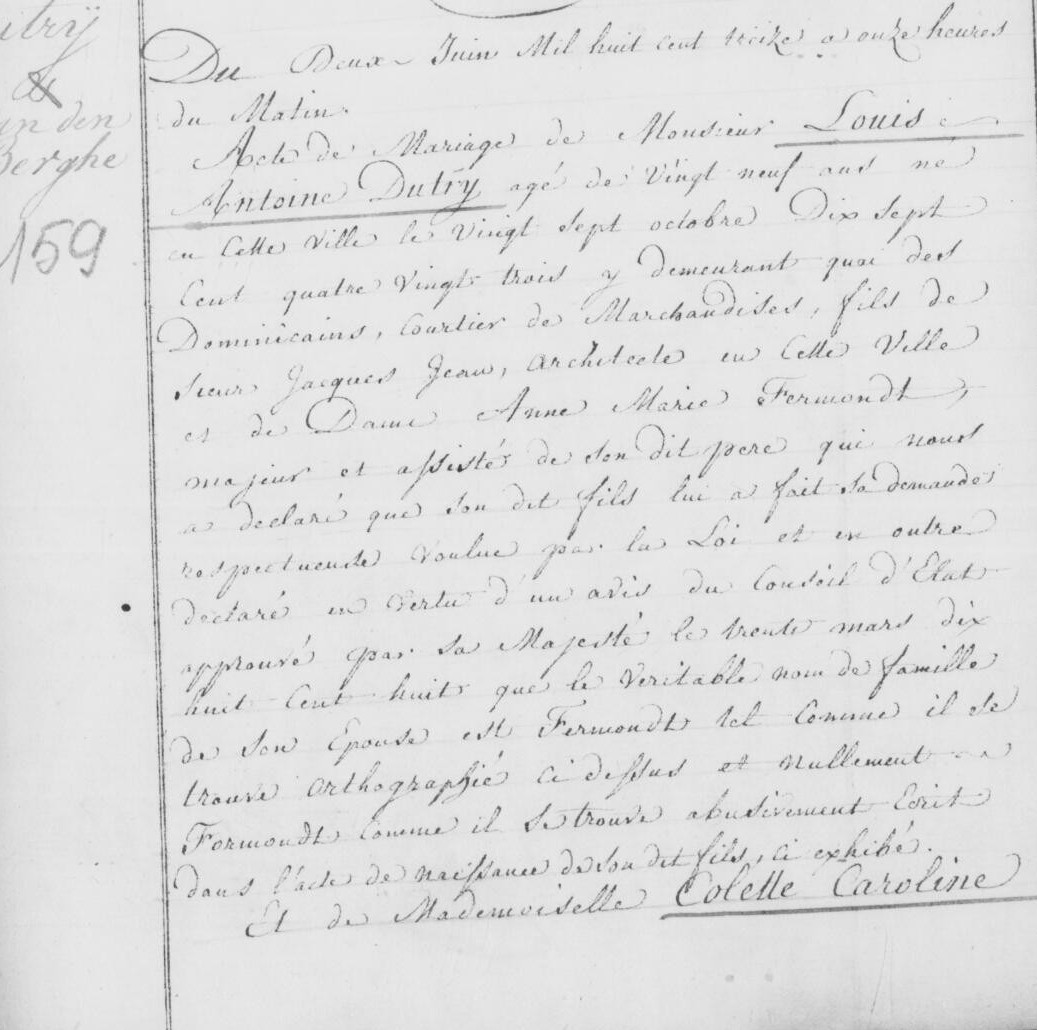 itrÿ
&
an den
Berghe
159
Du Deux Juin Mil huit cent treize a onze heures
du Matin.
Acte de Mariage de Monsieur Louis
Antoine Dutrÿ agé de Vingt neuf ans né
en Cette Ville le Vingt sept octobre Dix sept
Cent quatre Vingt trois y demeurant quai des
Dominicains, Courtier de Marchandises, fils de
sieur Jacques Jean, architecte en Cette Ville
et de Dame Anne Marie Fermondt,
majeur et assisté de son dit pere qui nous
a declaré que son dit fils lui a fait sa demande
respectueuse voulue par la Loi et en outre
declaré en Vertu d'un avis du Conseil d'Etat
approuvé par sa Majesté le trente mars dix
huit Cent huit que le Veritable nom de famille
de son Epouse est Fermondt tel Comme il se
trouve orthographié ci dessus et nullement
Formondt Comme il se trouve abusivement Ecrit
dans l'acte de naissance de son dit fils, ci exhibé.
Et de Mademoiselle Colette Caroline